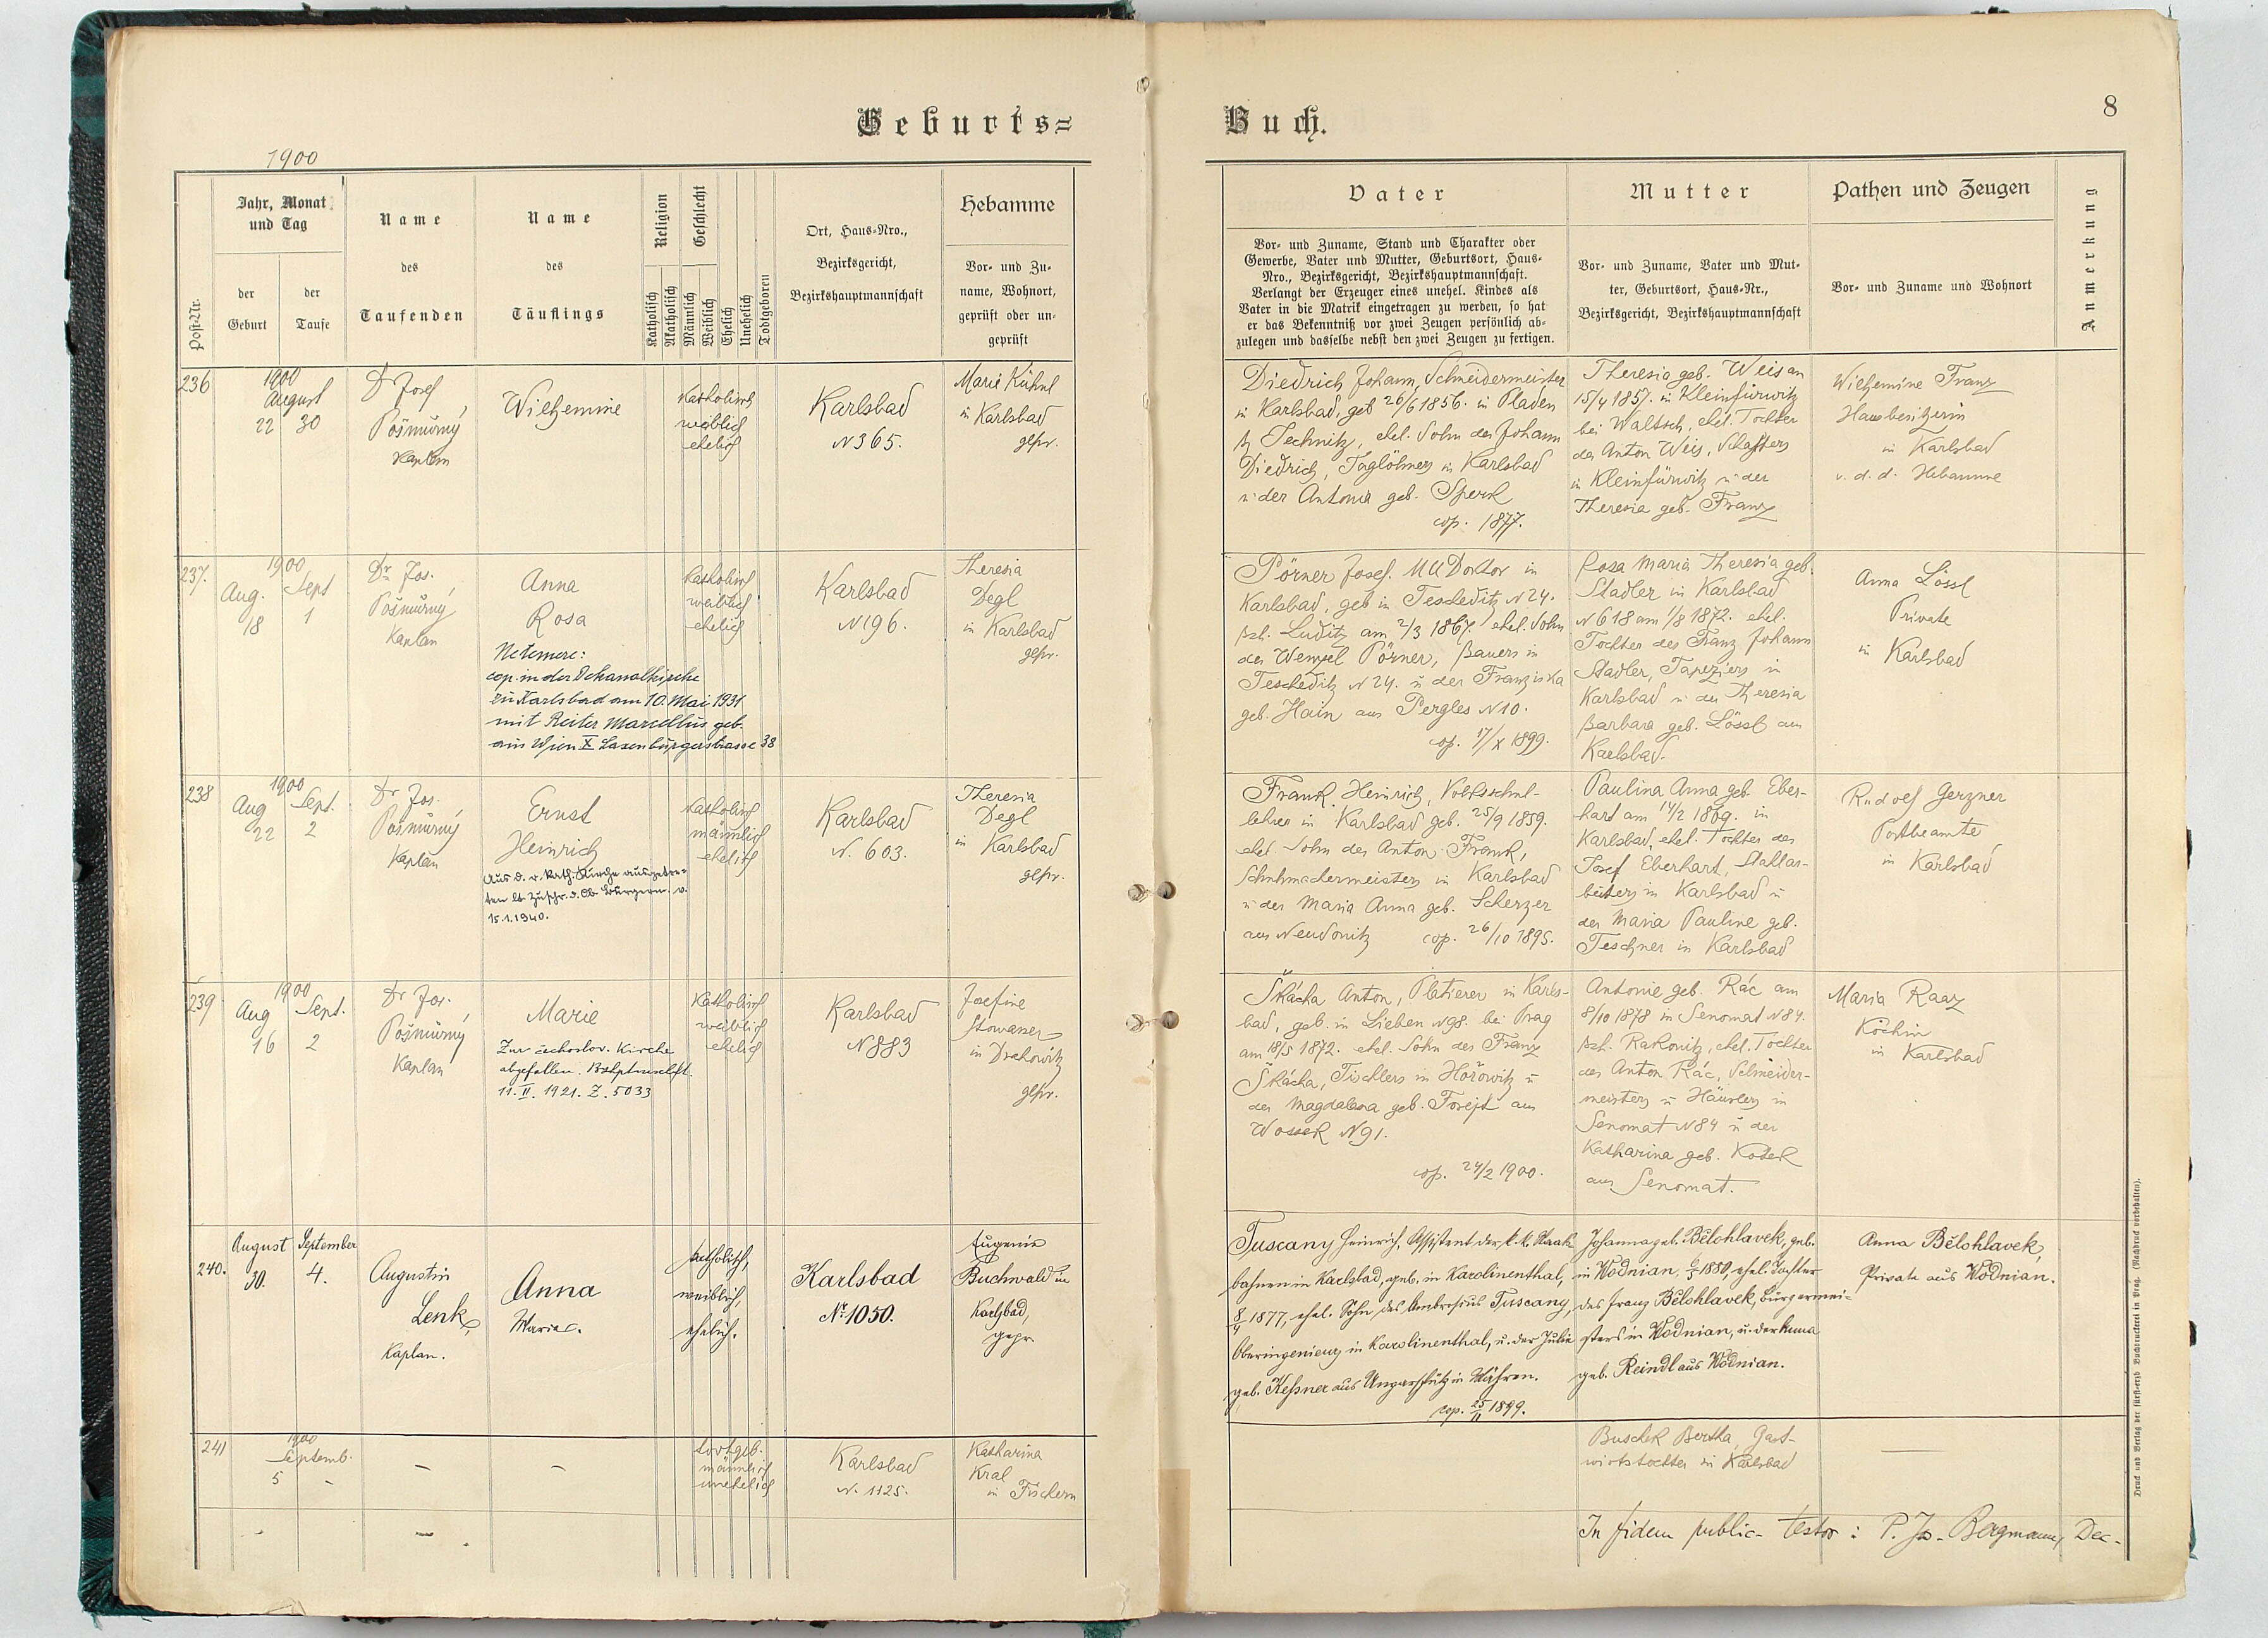 Geburts=
1900
Post-Nr.
Jahr, Monat und Tag
der Geburt
der Taufe
Name des Taufenden
Name des Täuflings
Religion
Katholisch
Akatholisch
Geschlecht
Männlich
Weiblich
Ehelich
Unehelich
Todtgeboren
Ort, Haus-Nro.,
Bezirksgericht,
Bezirkshauptmannschaft
Hebamme
Vor- und Zu-
name, Wohnort,
geprüft oder un-
geprüft
236
1900
August
22 30
Dr Josef
Pošmůrný
Kaplan
Wilhemine
Katholisch
weiblich
ehelich
Karlsbad
N 365.
Marie Kühnl
in Karlsbad
gepr.
237.
1900
Aug. Sept
18 1
Dr. Jos.
Pošmůrný
Kaplan
Anna
Rosa
Netemere:
cop. in der Dekanalkirche
zu Karlsbad am 10. Mai 1931
mit Reiter Marcellus geb.
aus Wien X Laxenburgerstrasse 38
Katholisch
weiblich
ehelich
Karlsbad
N 196.
Theresia
Degl
in Karlsbad
gepr.
238
1900
Aug Sept.
22 2
Dr Jos.
Pošmůrný
Kaplan
Ernst
Heinrich
Aus d. r. kath. Kirche ausgetre-
ten lt. Zuschr. d. Ob. Bürgerm. v.
15.1.1940.
Katholisch
männlich
ehelich
Karlsbad
N. 603.
Theresia
Degl
in Karlsbad
gepr.
239
1900
Aug Sept.
16 2
Dr Jos.
Pošmůrný
Kaplan
Marie
Zur čechoslov. Kirche
abgefallen.
11. II. 1921. Z. 5033
Katholisch
weiblich
ehelich
Karlsbad
N 883
Josefine
Stowasser
in Drahowitz
gepr.
240.
August September
30. 4.
Augustin
Lenk,
Kaplan.
Anna
Maria.
katholisch,
weiblich,
ehelich.
Karlsbad
Nr. 1050.
Eugenie
Buchwald in
Karlsbad,
gepr.
241
1900
Septemb.
5 -
–
–
todtgeb.
männlich
unehelich
Karlsbad
N. 1125.
Katharina
Kral
in Fischern
Buch.
8
Vater
Vor- und Zuname, Stand und Charakter oder
Gewerbe, Vater und Mutter, Geburtsort, Haus-
Nro., Bezirksgericht, Bezirkshauptmannschaft.
Verlangt der Erzeuger eines unehel. Kindes als
Vater in die Matrik eingetragen zu werden, so hat
er das Bekenntniß vor zwei Zeugen persönlich ab-
zulegen und dasselbe nebst den zwei Zeugen zu fertigen.
Mutter
Vor- und Zuname, Vater und Mut-
ter, Geburtsort, Haus-Nr.,
Bezirksgericht, Bezirkshauptmannschaft
Pathen und Zeugen
Vor- und Zuname und Wohnort
Anmerkung
Diedrich Johann, Schneidermeister
in Karlsbad, geb 26/6 1856. in Pladen
Bz Jechnitz, ehel. Sohn des Johann
Diedrich, Taglöhners in Karlsbad
u der Antonia geb. Sperk
cop. 1877.
Theresia geb. Weis am
15/4 1857. in Kleinfürwitz
bei Waltsch, ehel. Tochter
des Anton Weis, Schaffers
in Kleinfürwitz u der
Theresia geb. Franz
Wilhemine Franz
Hausbesitzerin
in Karlsbad
v. d. d. Hebamme
Pörner Josef. MUDoktor in
Karlsbad, geb in Tescheditz N 24.
Bzk. Luditz am 2/3 1867. ehel. Sohn
des Wenzel Pörner, Bauers in
Tescheditz N 24. u der Franziska
geb. Hain aus Pergles N 10.
cop. 17/X 1899.
Rosa Maria Theresia geb.
Stadler in Karlsbad
N 618 am 1/8 1872. ehel.
Tochter des Franz Johann
Stadler, Tapeziers in
Karlsbad u der Theresia
Barbara geb. Lössl aus
Karlsbad.
Anna Lössl
Private
in Karlsbad
Frank Heinrich, Volksschul-
lehrer in Karlsbad geb. 25/9 1859.
ehel. Sohn des Anton Frank,
Schuhmachermeisters in Karlsbad
u der Maria Anna geb. Scherzer
aus Neudonitz cop. 26/10 1895.
Paulina Anna geb. Eber-
hart am 14/2 1869. in
Karlsbad, ehel. Tochter des
Josef Eberhart, Stahlar-
beiters in Karlsbad u
der Maria Pauline geb.
Teschner in Karlsbad
Rudolf Gerzner
Postbeamte
in Karlsbad
Škácha Anton, Platierer in Karls-
bad, geb. in Lieben N 98. bei Prag
am 18/5 1872. ehel. Sohn des Franz
Škácha, Tischlers in Hořowitz u
der Magdalena geb. Forejt aus
Wossek N 91.
cop. 24/2 1900.
Antonie geb. Rác am
8/10 1878 in Senomat N 84.
Bzk. Rakonitz, ehel. Tochter
des Anton Rác, Schneider-
meisters u Häuslers in
Senomat N 84 u der
Katharina geb. Kodek
aus Senomat.
Maria Raaz
Köchin
in Karlsbad
Tuscany Heinrich, Assistent der k. k. Staats
bahnen in Karlsbad, geb. in Karolinenthal,
8/4 1877, ehel. Sohn des Ambrosius Tuscany,
Oberingenieurs in Karolinenthal, u. der Julie
geb. Keßner aus Ungarschütz in Mähren.
cop. 25/11 1899.
Johanna geb. Bělohlavek, geb.
in Wodnian, 6/5 1880, ehel. Tochter
des Franz Bělohlavek, Bürgermei-
sters in Wodnian, u. der Anna
geb. Reindl aus Wodnian.
Anna Bělohlavek,
Private aus Wodnian.
Buschek Bertha, Gast-
wirtstochter in Karlsbad
In fidem public- testor: P. Jos. Bergmann, Dec.
Druck und Verlag der fürst-erzb Buchdruckerei in Prag. (Nachdruck vorbehalten).